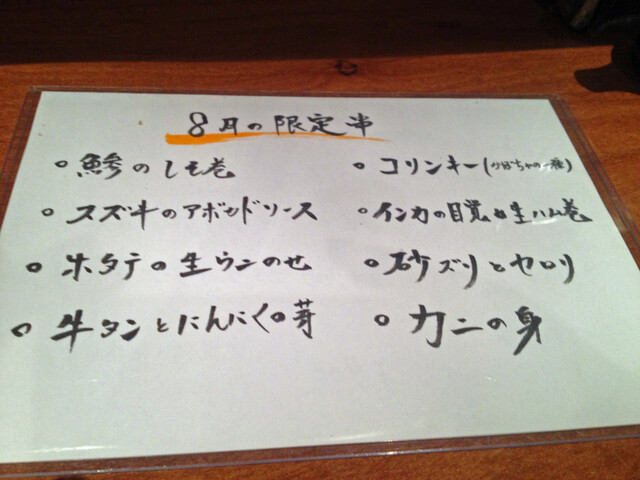 8月の限定串
○ 鯵のしそ巻
○ スズキのアボカドソース
○ ホタテの生ウニのせ
○ 牛タンとにんにくの芽
○ コリンキー(かぼちゃの一種)
○ インカの目覚め生ハム巻
○ 砂ズリとセロリ
○ カニの身